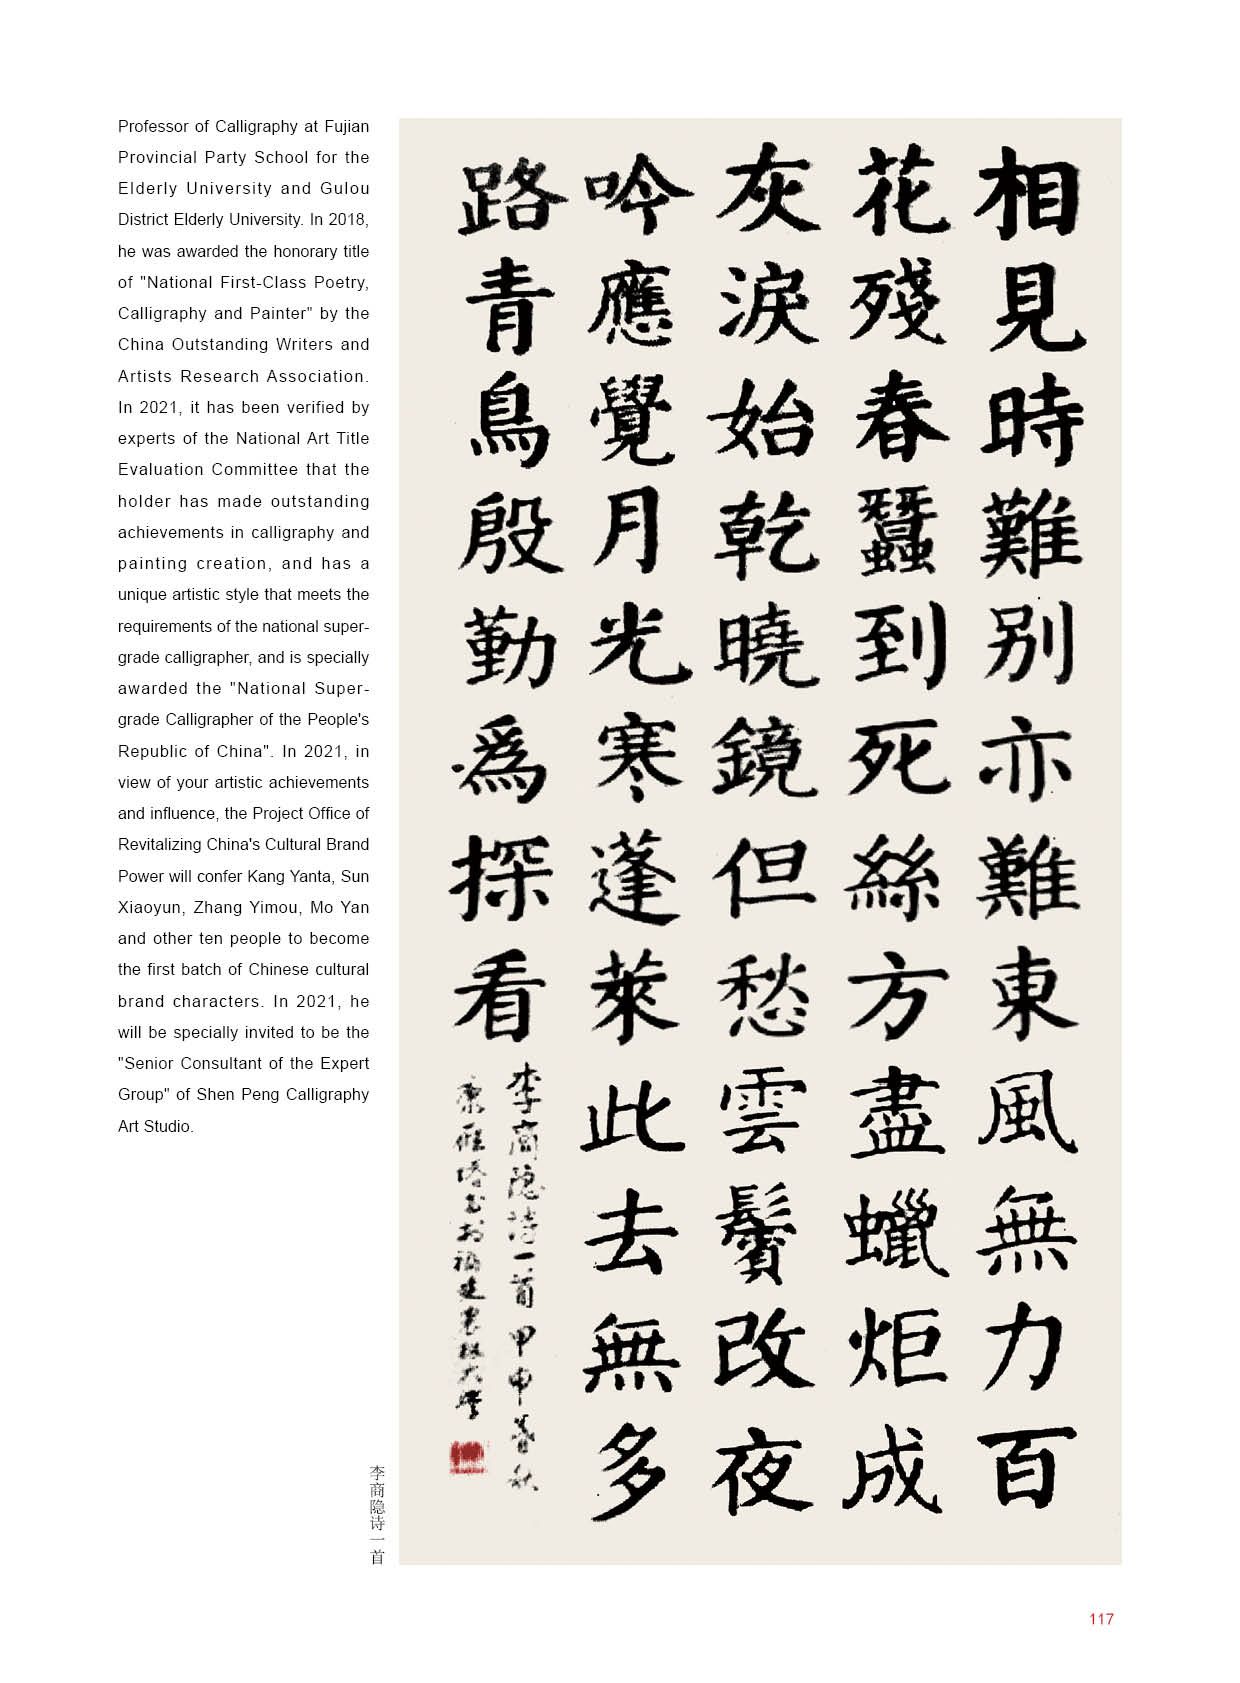 Professor of Calligraphy at Fujian
Provincial Party School for the
Elderly University and Gulou
District Elderly University. In 2018,
he was awarded the honorary title
of "National First-Class Poetry,
Calligraphy and Painter" by the
China Outstanding Writers and
Artists Research Association.
In 2021, it has been verified by
experts of the National Art Title
Evaluation Committee that the
holder has made outstanding
achievements in calligraphy and
painting creation, and has a
unique artistic style that meets the
requirements of the national super-
grade calligrapher, and is specially
awarded the "National Super-
grade Calligrapher of the People's
Republic of China". In 2021, in
view of your artistic achievements
and influence, the Project Office of
Revitalizing China's Cultural Brand
Power will confer Kang Yanta, Sun
Xiaoyun, Zhang Yimou, Mo Yan
and other ten people to become
the first batch of Chinese cultural
brand characters. In 2021, he
will be specially invited to be the
"Senior Consultant of the Expert
Group" of Shen Peng Calligraphy
Art Studio.
相見時難别亦難東風無力百
花殘春蠶到死絲方盡蠟炬成
灰淚始乾曉鏡但愁雲鬢改夜
吟應覺月光寒蓬萊此去無多
路青鳥殷勤爲探看
李商隐诗一首甲申暮秋
康雁塔书於福建農林大學
李商隐诗一首
117